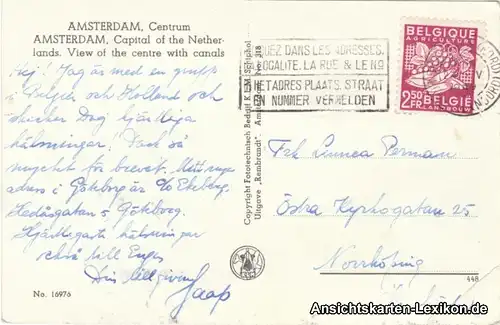 AMSTERDAM, Centrum
AMSTERDAM, Capital of the Nether-
lands. View of the centre with canals
Hej! Jag är med en grupp
i Belgien och Holland och
skickar Dig hjärtliga
hälsningar. Tack så
mycket för brevet. Mitt nya
adress i Göteborg är c/o Ekeberg.
Hedåsgatan 5 Göteborg.
Hjärtligaste hälsningar
också till Inger
Din tillgivne
Jaap
No. 16976
Copyright Fototechnisch Bedrijf K.L.M. Schiphol
Uitgave „Rembrandt". Amsterdam
DANS LES ADRESSES,
LOCALITE, LA RUE & LE No
ADRES PLAATS, STRAAT
EN NUMMER VERMELDEN
BELGIQUE
AGRICULTURE
2,50 FR.
BELGIE
LANDBOUW
Frk Linnea Perman
Östra Kyrkogatan 25
Norrköping
448
Ansichtskarten-Lexikon.de